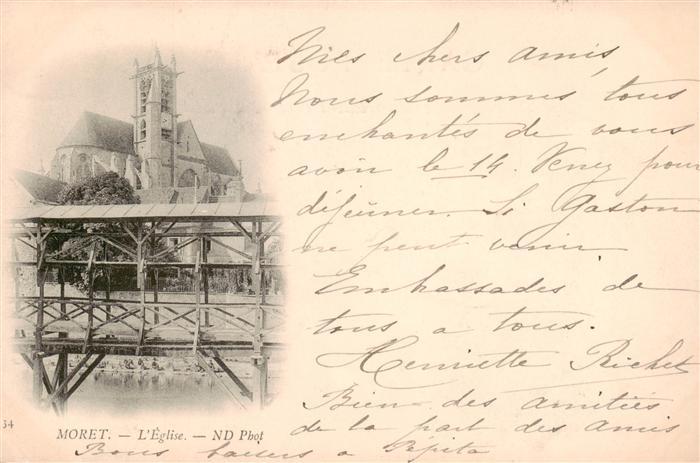 Mes chers amis,
Nous sommes tous
enchantés de vous
avoir le 14. Venez pour
déjeûner. Si Gaston
ne peut venir
Embassades de
tous a tous.
Henriette Richet
Bien des amitiés
de la part des amis
Bons baisers a Pépita
34
MORET. — L'Église. — ND Phot